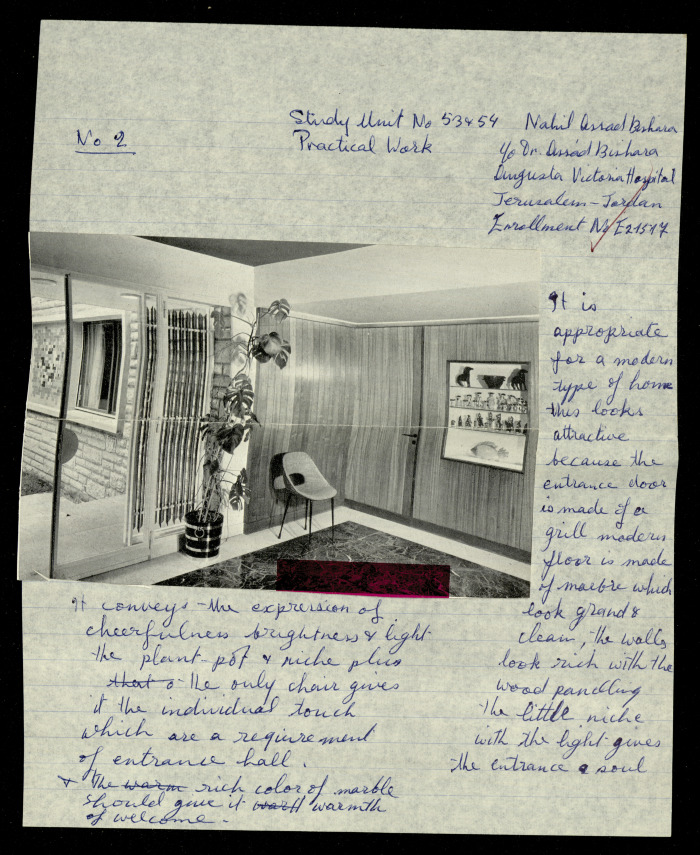 No 2
Study Unit No 53454
Practical Work
Nahil Assad Bishara
c/o Dr. Assad Bishara
Augusta Victoria Hospital
Jerusalem - Jordan
Enrollment No E21517
It is
appropriate
for a modern
type of home
this looks
attractive
because the
entrance door
is made of a
grill modern
floor is made
of marbre which
look grand &
clean, the walls
look rich with the
wood panelling
the little niche
with the light gives
the entrance a soul
It conveys the expression of
cheerfulness brightness & light
the plant-pot & niche plus
that o the only chair gives
it the individual touch
which are a requirement
of entrance hall.
+ the warm rich color of marble
should give it warmth
of welcome.